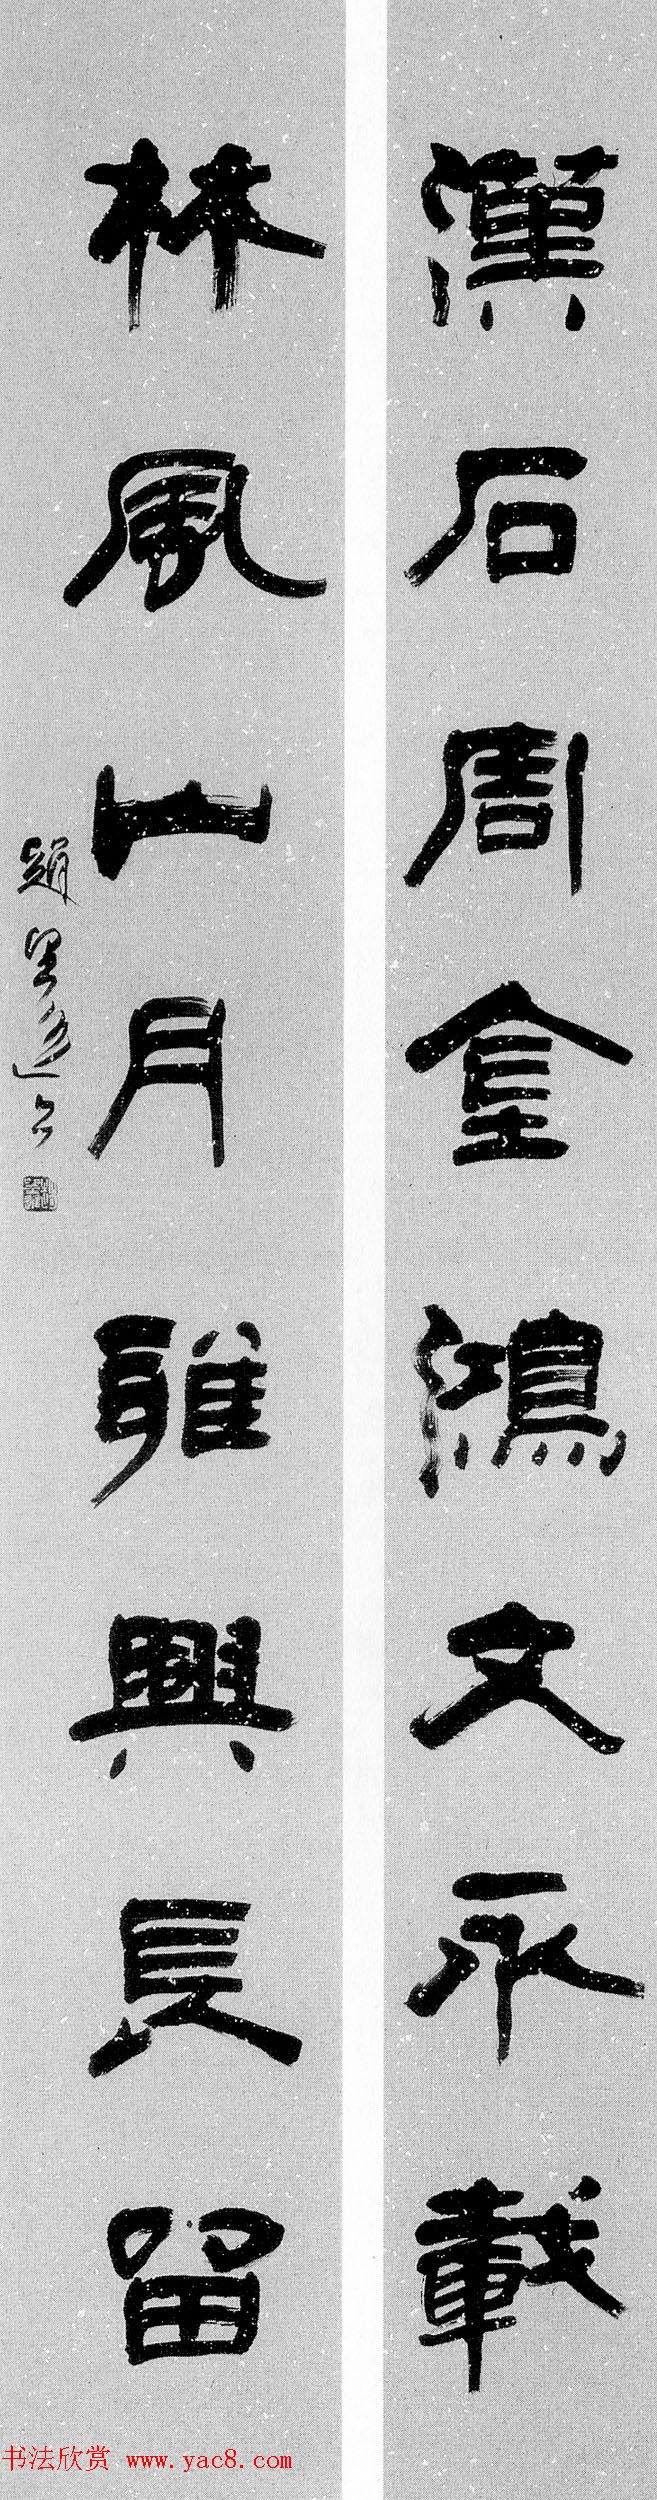 漢石周金鴻文永載
林風山月雅興長留
书法欣赏 www.yac8.com